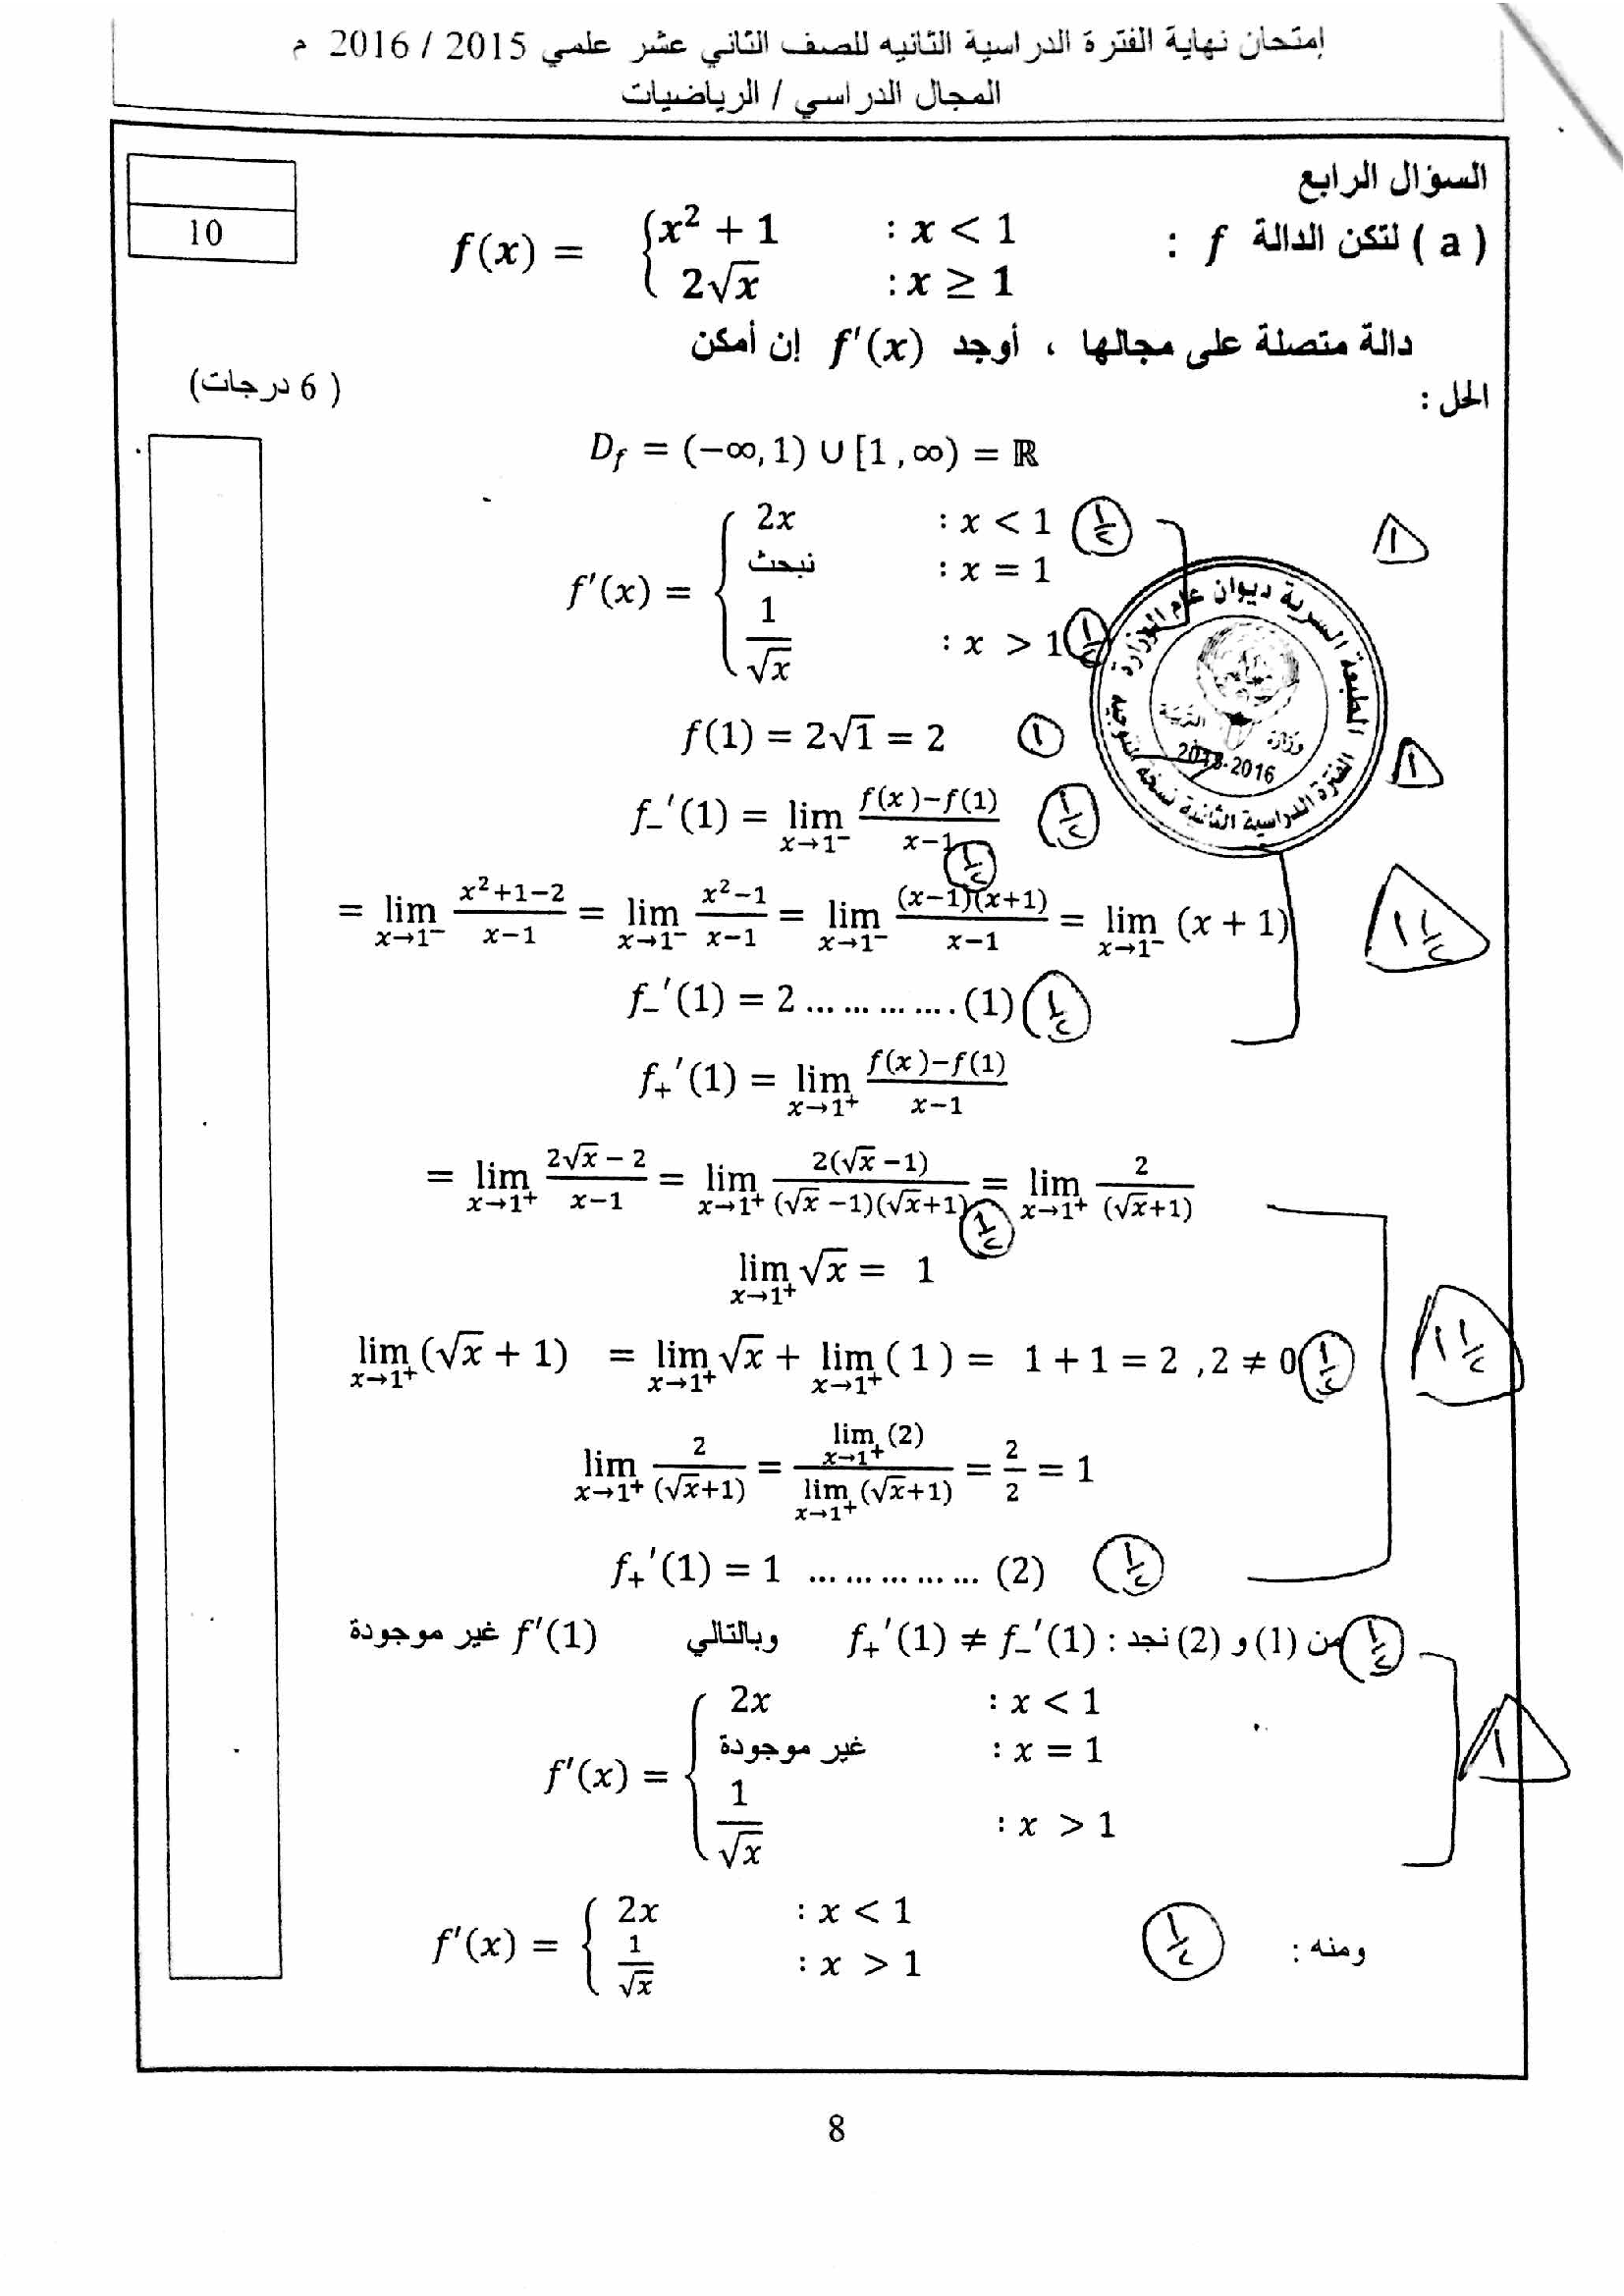 إمتحان نهاية الفترة الدراسية الثانيه للصف الثاني عشر علمي 2015 / 2016 م
المجال الدراسي / الرياضيات
السؤال الرابع
10
( a ) لتكن الدالة f : f(x) = { x² + 1 : x < 1
2√x : x ≥ 1
دالة متصلة على مجالها ، أوجد f′(x) إن أمكن
( 6 درجات)
الحل :
D_f = (−∞, 1) ∪ [1 , ∞) = ℝ
f′(x) = { 2x : x < 1 ½ ١
نبحث : x = 1
1/√x : x > 1 ½
f(1) = 2√1 = 2 ١ ١
f₋′(1) = lim x→1⁻ (f(x)−f(1))/(x−1) ½
= lim x→1⁻ (x²+1−2)/(x−1) = lim x→1⁻ (x²−1)/(x−1) = lim x→1⁻ ((x−1)(x+1))/(x−1) = lim x→1⁻ (x + 1) ½ ١½
f₋′(1) = 2 ... ... ... .... (1) ½
f₊′(1) = lim x→1⁺ (f(x)−f(1))/(x−1)
= lim x→1⁺ (2√x − 2)/(x−1) = lim x→1⁺ (2(√x −1))/((√x −1)(√x+1)) = lim x→1⁺ 2/(√x+1) ½
lim x→1⁺ √x = 1
lim x→1⁺ (√x + 1) = lim x→1⁺ √x + lim x→1⁺ ( 1 ) = 1 + 1 = 2 , 2 ≠ 0 ½ ١½
lim x→1⁺ 2/(√x+1) = lim x→1⁺ (2) / lim x→1⁺ (√x+1) = 2/2 = 1
f₊′(1) = 1 ... ... ... ... ... (2) ½
من (1) و (2) نجد : f₊′(1) ≠ f₋′(1) وبالتالي f′(1) غير موجودة ½
f′(x) = { 2x : x < 1
غير موجودة : x = 1 ١
1/√x : x > 1
ومنه : f′(x) = { 2x : x < 1 ½
1/√x : x > 1
الطبعة السرية ديوان عام الوزارة
الفترة الدراسية الثانية نسخة التوجيه
وزارة التربية
2015-2016
8